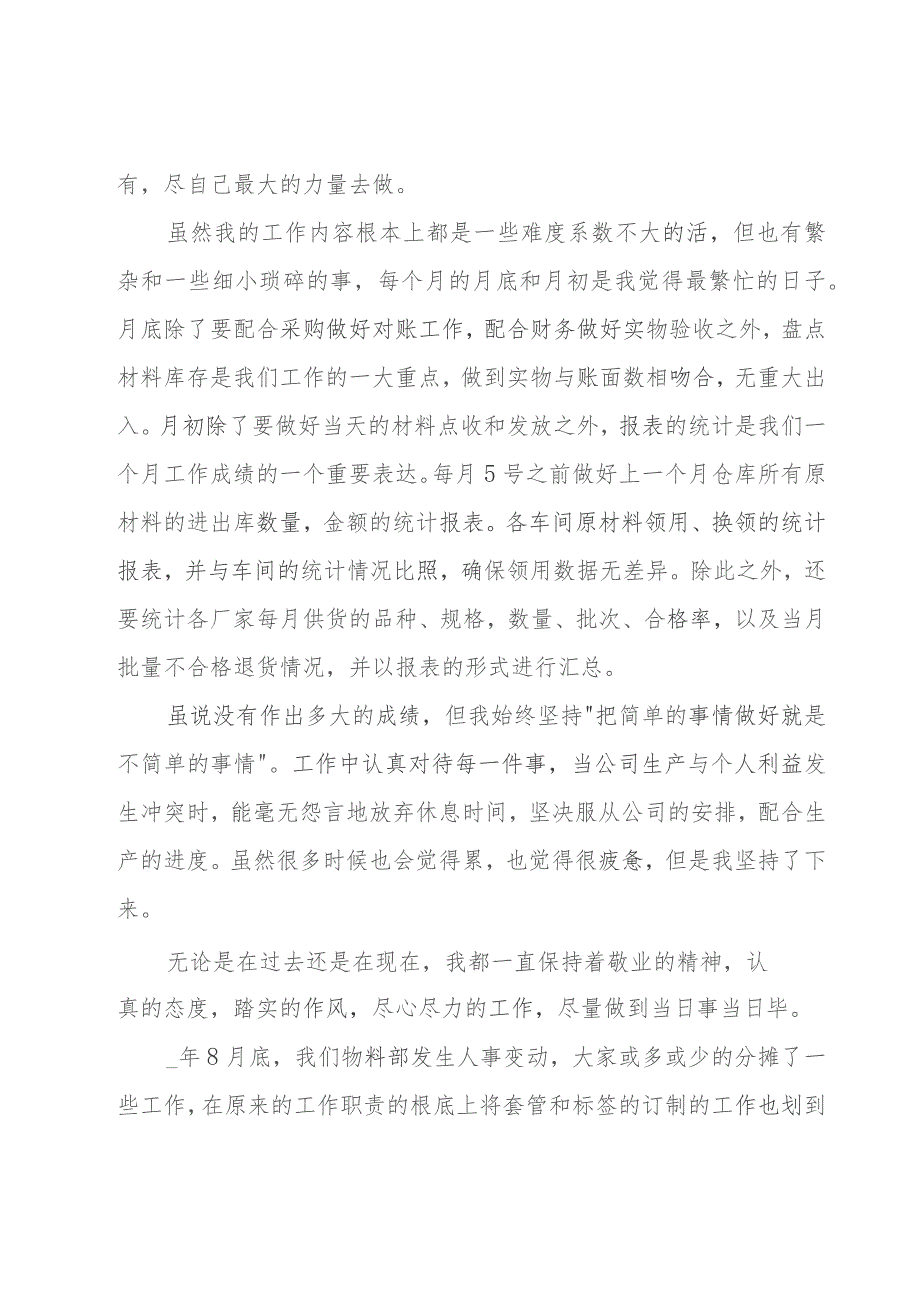 有，尽自己最大的力量去做。
虽然我的工作内容根本上都是一些难度系数不大的活，但也有繁
杂和一些细小琐碎的事，每个月的月底和月初是我觉得最繁忙的日子。
月底除了要配合采购做好对账工作，配合财务做好实物验收之外，盘点
材料库存是我们工作的一大重点，做到实物与账面数相吻合，无重大出
入。月初除了要做好当天的材料点收和发放之外，报表的统计是我们一
个月工作成绩的一个重要表达。每月5号之前做好上一个月仓库所有原
材料的进出库数量，金额的统计报表。各车间原材料领用、换领的统计
报表，并与车间的统计情况比照，确保领用数据无差异。除此之外，还
要统计各厂家每月供货的品种、规格，数量、批次、合格率，以及当月
批量不合格退货情况，并以报表的形式进行汇总。
虽说没有作出多大的成绩，但我始终坚持"把简单的事情做好就是
不简单的事情"。工作中认真对待每一件事，当公司生产与个人利益发
生冲突时，能毫无怨言地放弃休息时间，坚决服从公司的安排，配合生
产的进度。虽然很多时候也会觉得累，也觉得很疲惫，但是我坚持了下
来。
无论是在过去还是在现在，我都一直保持着敬业的精神，认
真的态度，踏实的作风，尽心尽力的工作，尽量做到当日事当日毕。
_年8月底，我们物料部发生人事变动，大家或多或少的分摊了一
些工作，在原来的工作职责的根底上将套管和标签的订制的工作也划到